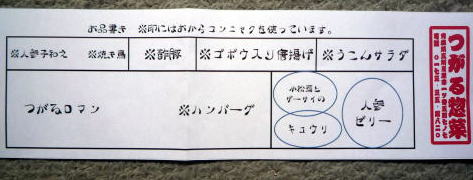 お品書き ※印にはおからコンニャクを使っています。
※人参子和え ※焼き鳥 ※酢豚 ※ゴボウ入り唐揚げ ※うこんサラダ
つがるロマン ※ハンバーグ
小松菜と
ザーサイの
キュウリ
人参
ゼリー
つがる惣菜